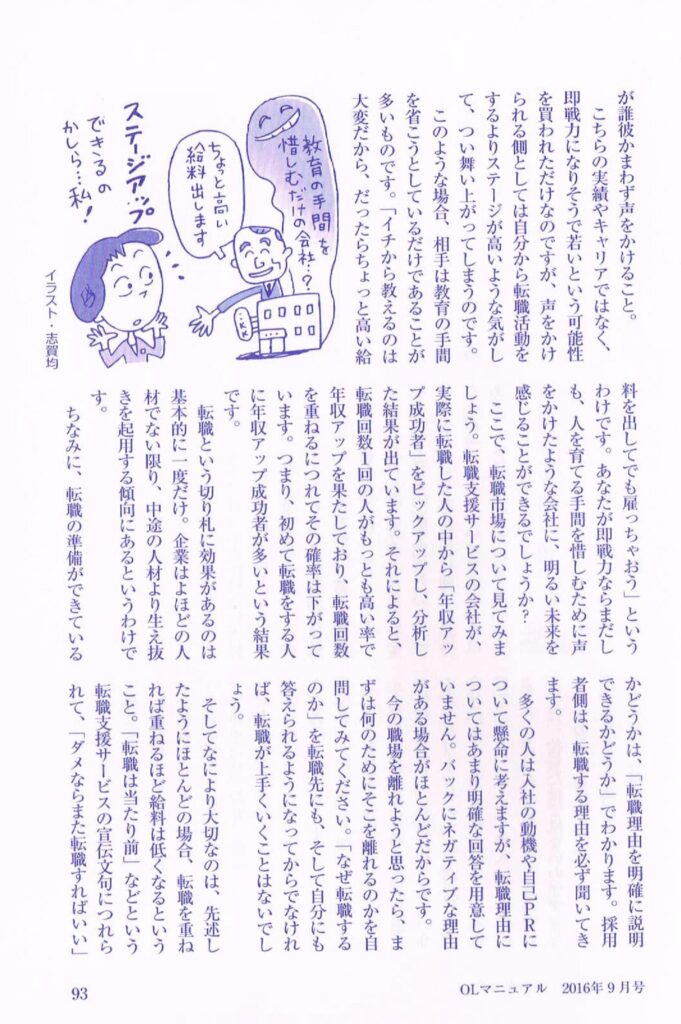 が誰彼かまわず声をかけること。
こちらの実績やキャリアではなく、
即戦力になりそうで若いという可能性
を買われただけなのですが、声をかけ
られる側としては自分から転職活動を
するよりステージが高いような気がし
て、つい舞い上がってしまうのです。
このような場合、相手は教育の手間
を省こうとしているだけであることが
多いものです。「イチから教えるのは
大変だから、だったらちょっと高い給
教育の手間を
惜しむだけの会社…?
ちょっと高い
給料出します
ステージアップ
できるの
かしら…私!
イラスト・志賀均
料を出してでも雇っちゃおう」という
わけです。あなたが即戦力ならまだし
も、人を育てる手間を惜しむために声
をかけたような会社に、明るい未来を
感じることができるでしょうか?
ここで、転職市場について見てみま
しょう。転職支援サービスの会社が、
実際に転職した人の中から「年収アッ
プ成功者」をピックアップし、分析し
た結果が出ています。それによると、
転職回数1回の人がもっとも高い率で
年収アップを果たしており、転職回数
を重ねるにつれてその確率は下がって
います。つまり、初めて転職をする人
に年収アップ成功者が多いという結果
です。
転職という切り札に効果があるのは
基本的に一度だけ。企業はよほどの人
材でない限り、中途の人材より生え抜
きを起用する傾向にあるというわけで
す。
ちなみに、転職の準備ができている
かどうかは、「転職理由を明確に説明
できるかどうか」でわかります。採用
者側は、転職する理由を必ず聞いてき
ます。
多くの人は入社の動機や自己PRに
ついて懸命に考えますが、転職理由に
ついてはあまり明確な回答を用意して
いません。バックにネガティブな理由
がある場合がほとんどだからです。
今の職場を離れようと思ったら、ま
ずは何のためにそこを離れるのかを自
問してみてください。「なぜ転職する
のか」を転職先にも、そして自分にも
答えられるようになってからでなけれ
ば、転職が上手くいくことはないでし
ょう。
そしてなにより大切なのは、先述し
たようにほとんどの場合、転職を重ね
れば重ねるほど給料は低くなるという
こと。「転職は当たり前」などという
転職支援サービスの宣伝文句につれら
れて、「ダメならまた転職すればいい」
93
OLマニュアル 2016年9月号